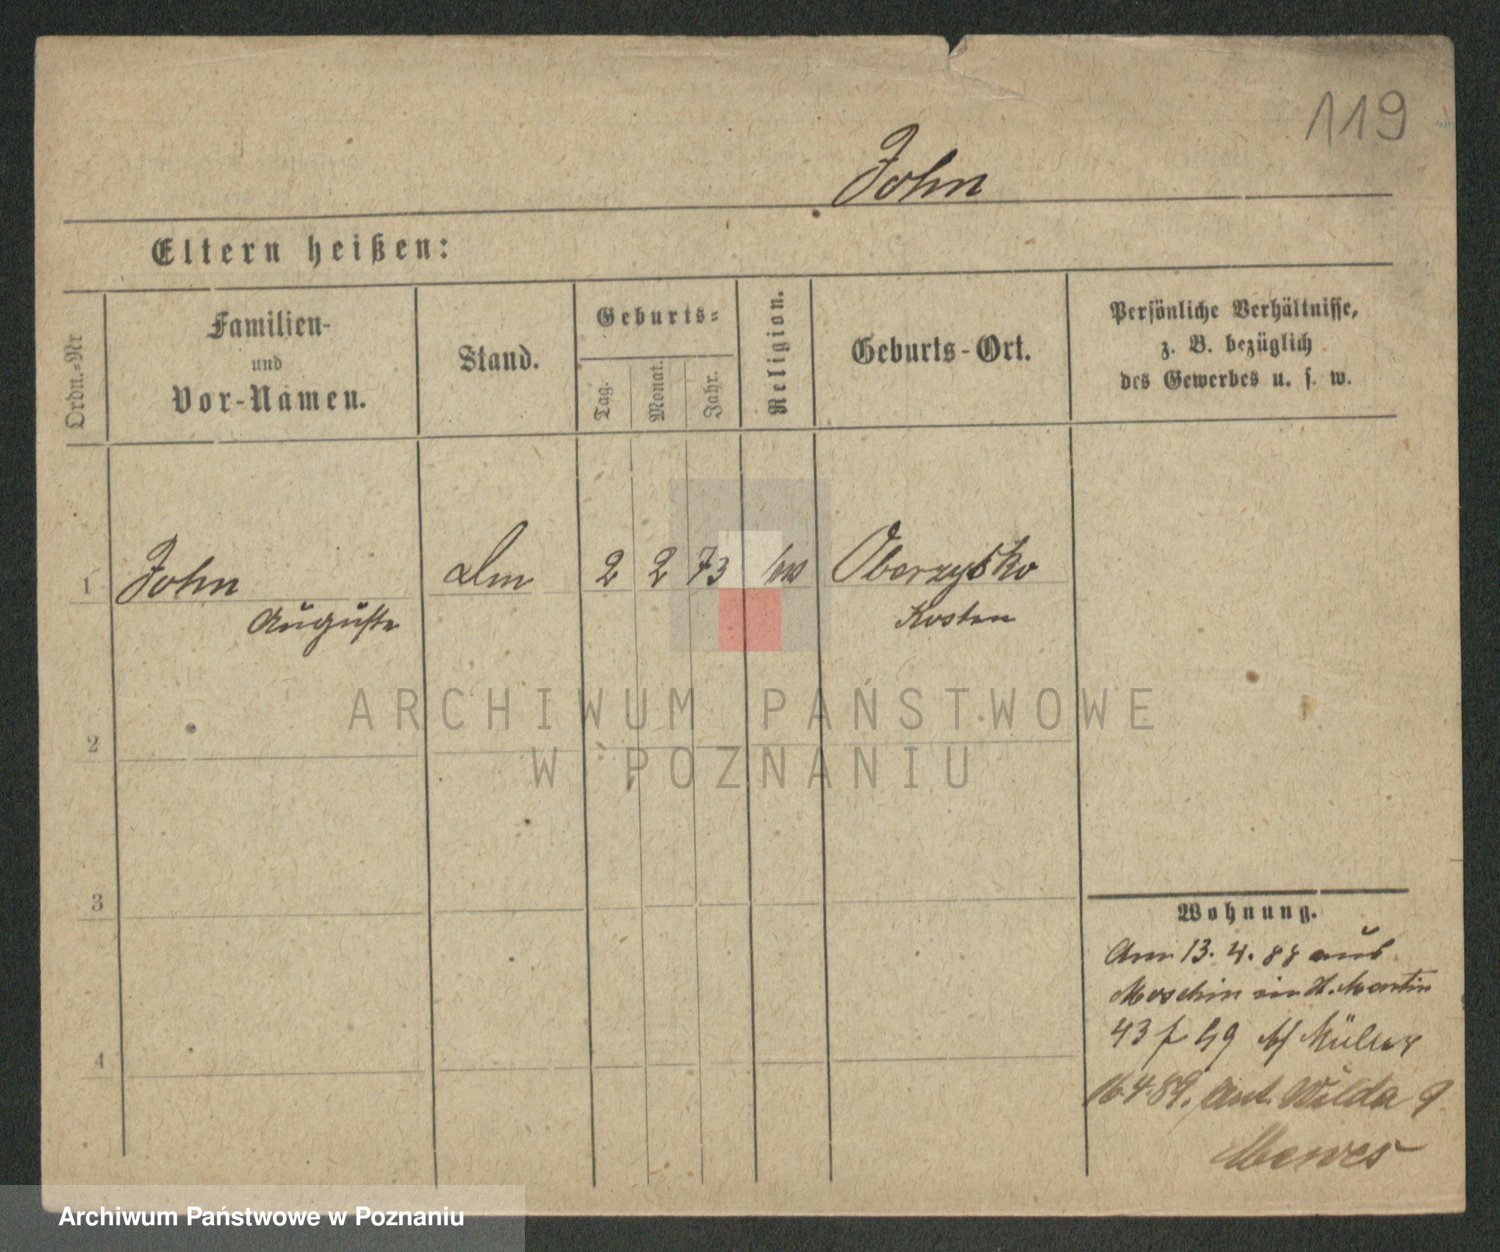 119
John
Eltern heißen:
Ordn.-Nr
Familien-
und
Vor-Namen.
Stand.
Geburts-
Tag.
Monat.
Jahr.
Religion.
Geburts-Ort.
Persönliche Verhältnisse,
z. B. bezüglich
des Gewerbes u. s. w.
1 John 2 2 73 Oberzysko
Auguste Kosten
ARCHIWUM PAŃSTWOWE
W POZNANIU
2
3
4
Wohnung.
Am 13. 4. 88 aus
Moschin in St. Martin
43 f 49 Müller
16 4 89. Unt. Wilda 9
Mewes
Archiwum Państwowe w Poznaniu